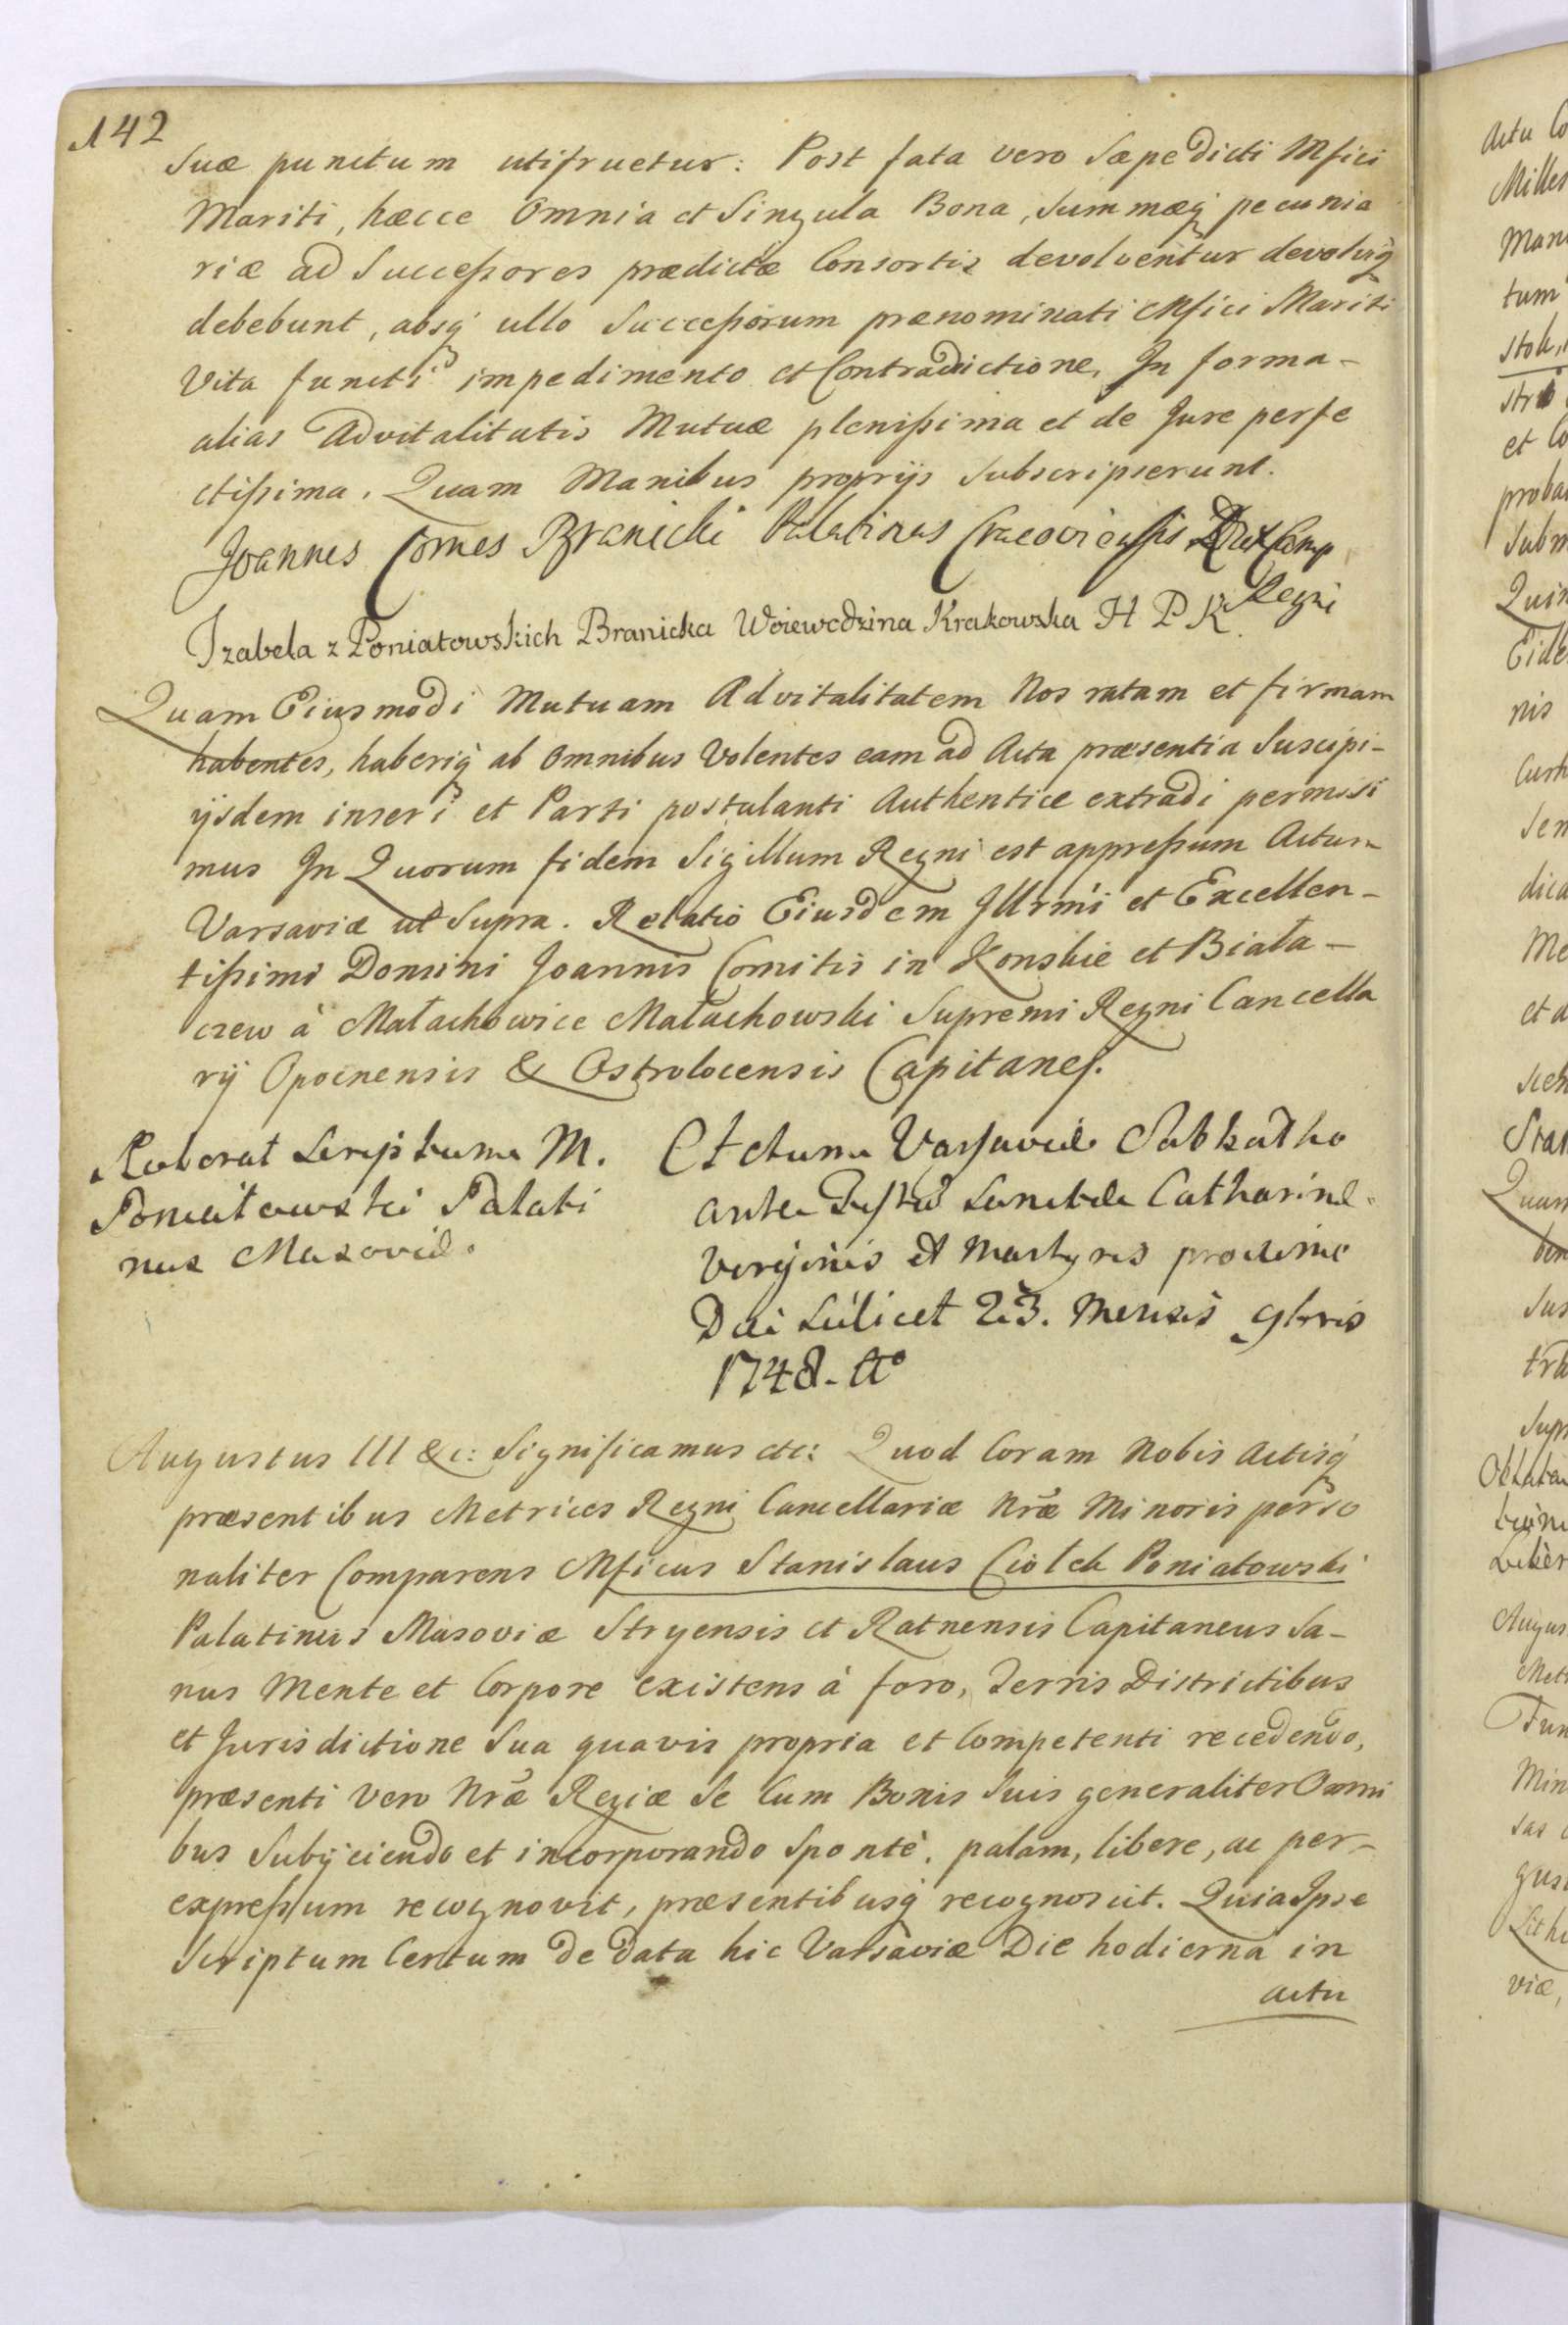 142
Suæ punctum utifruetur: Post fata vero Sæpe Dicti Mfici
Mariti, hæcce Omnia et Singula Bona, Summæq pecunia
riæ ad Succeßores prædictæ Consortis devolventur devolviq
debebunt, absq ullo Succeßorum prænominati Mfici Mariti
Vita functi impedimento et Contradictione, In forma-
alias Advitalitatis Mutuæ plenißima et de Jure perfe
ctißima. Quam Manibus proprijs Subscripserunt.
Joannes Comes Branicki Palatinus Cracoviensis Dux Camp
Regni
Izabela z Poniatowskich Branicka Woiewodzina Krakowska H P K
Quam Eiusmodi Mutuam Advitalitatem Nos ratam et firmam
habentes, haberiq ab Omnibus Volentes eam ad Acta præsentia Suscipi-
ijsdem inseri et Parti postulanti Authentice extradi permisi
mus In Quorum fidem Sigillum Regni est appreßum Actum
Varsaviæ ut Supra. Relatio Eiusdem Illrmi et Excellen-
tißimi Domini Joannis Comitis in Konskie et Biała-
czew à Małachowice Małachowski Supremi Regni Cancella
rij Opocnensis & Ostrolocensis Capitanej.
Roborat Scriptum M.
Poniatowski Palati
nus Masoviæ.
Actum Varsaviæ Sabbatho
ante Festū Sanctæ Catharinæ
Virginis et Martyris proxime
Die Scilicet 23. Mensis 9bris
1748. Ao
Augustus III &c: Significamus etc: Quod Coram Nobis Actisq
præsentibus Metrices Regni Cancellariæ Nræ Minoris perso
naliter Comparens Mficus Stanislaus Ciołek Poniatowski
Palatinus Masoviæ Stryensis et Ratnensis Capitaneus Sa-
nus Mente et Corpore existens à foro, Terris Districtibus
et Jurisdictione Sua quavis propria et Competenti recedendo,
præsenti vero Nræ Regiæ Se Cum Bonis Suis generaliter Omni
bus Subijciendo et incorporando Sponte, palam, libere, ac per-
expreßum recognovit, præsentibusq recognoscit. Quia Ipse
Scriptum Certum de data hic Varsaviæ Die hodierna in
actu
actu Co
Milles
Man
tum
stoli,
stri
et Co
proba
Subm
Quin
Eide
nis
Curh
Sen
dica
Me
et a
Sieh
Stan
Quam
ben
Sus
tra
Supr
Augus
Mett
Fun
Min
sas
gus
Lith
viæ,